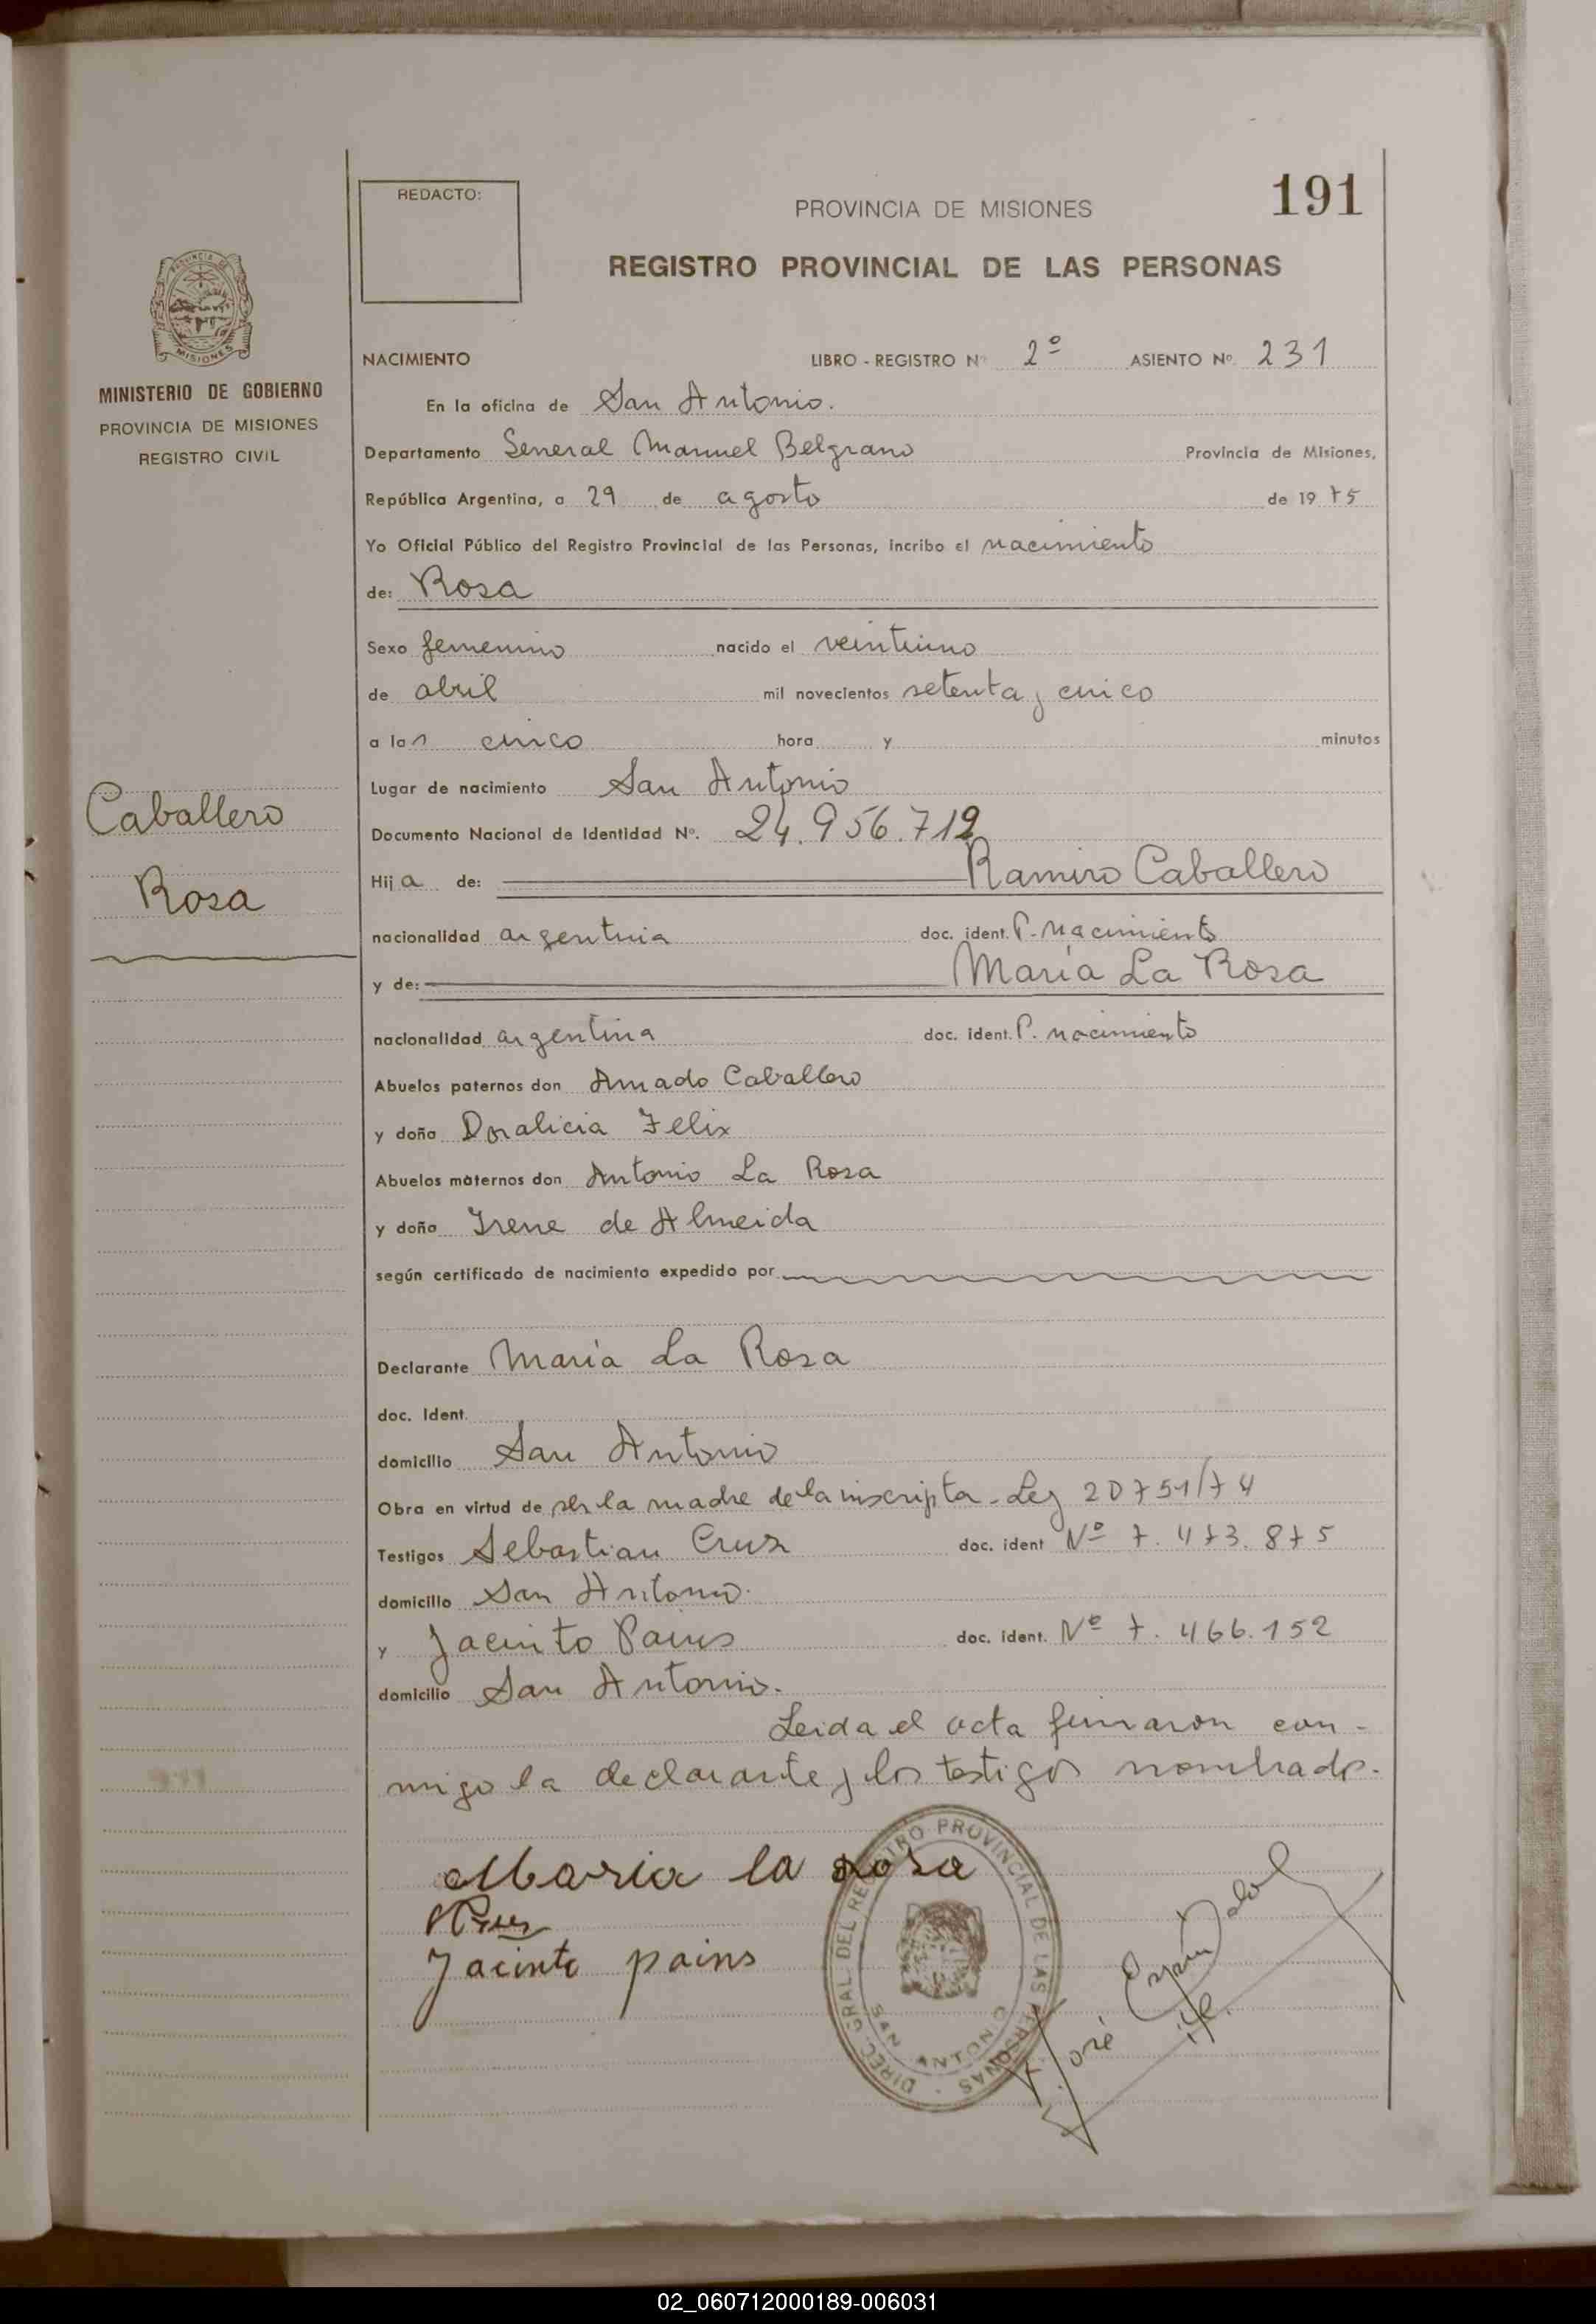 191
REDACTO:
PROVINCIA DE MISIONES
REGISTRO PROVINCIAL DE LAS PERSONAS
PROVINCIA DE
MISIONES
MINISTERIO DE GOBIERNO
PROVINCIA DE MISIONES
REGISTRO CIVIL
NACIMIENTO LIBRO - REGISTRO Nº 2º ASIENTO Nº 231
En la oficina de San Antonio.
Departamento General Manuel Belgrano Provincia de Misiones,
República Argentina, a 29 de agosto de 1975
Yo Oficial Público del Registro Provincial de las Personas, incribo el nacimiento
de: Rosa
Sexo femenino nacido el veintiuno
de abril mil novecientos setenta y cinco
a las cinco hora y minutos
Lugar de nacimiento San Antonio
Caballero
Rosa
Documento Nacional de Identidad Nº. 24.956.712
Hija de: Ramiro Caballero
nacionalidad argentina doc. ident. P. nacimiento
y de: María La Rosa
nacionalidad argentina doc. ident. P. nacimiento
Abuelos paternos don Amado Caballero
y doña Doralicia Felix
Abuelos maternos don Antonio La Rosa
y doña Irene de Almeida
según certificado de nacimiento expedido por
Declarante María La Rosa
doc. Ident.
domicilio San Antonio
Obra en virtud de ser la madre de la inscripta - Ley 20751/74
Testigos Sebastian Cruz doc. ident Nº 7.473.875
domicilio San Antonio.
y Jacinto Pains doc. ident. Nº 7.466.152
domicilio San Antonio.
Leida el acta firmaron con-
migo la declarante y los testigos nombrado.
Maria la rosa
Jacinto pains
DIREC. GRAL. DEL REGISTRO PROVINCIAL DE LAS PERSONAS
SAN ANTONIO
José
02_060712000189-006031